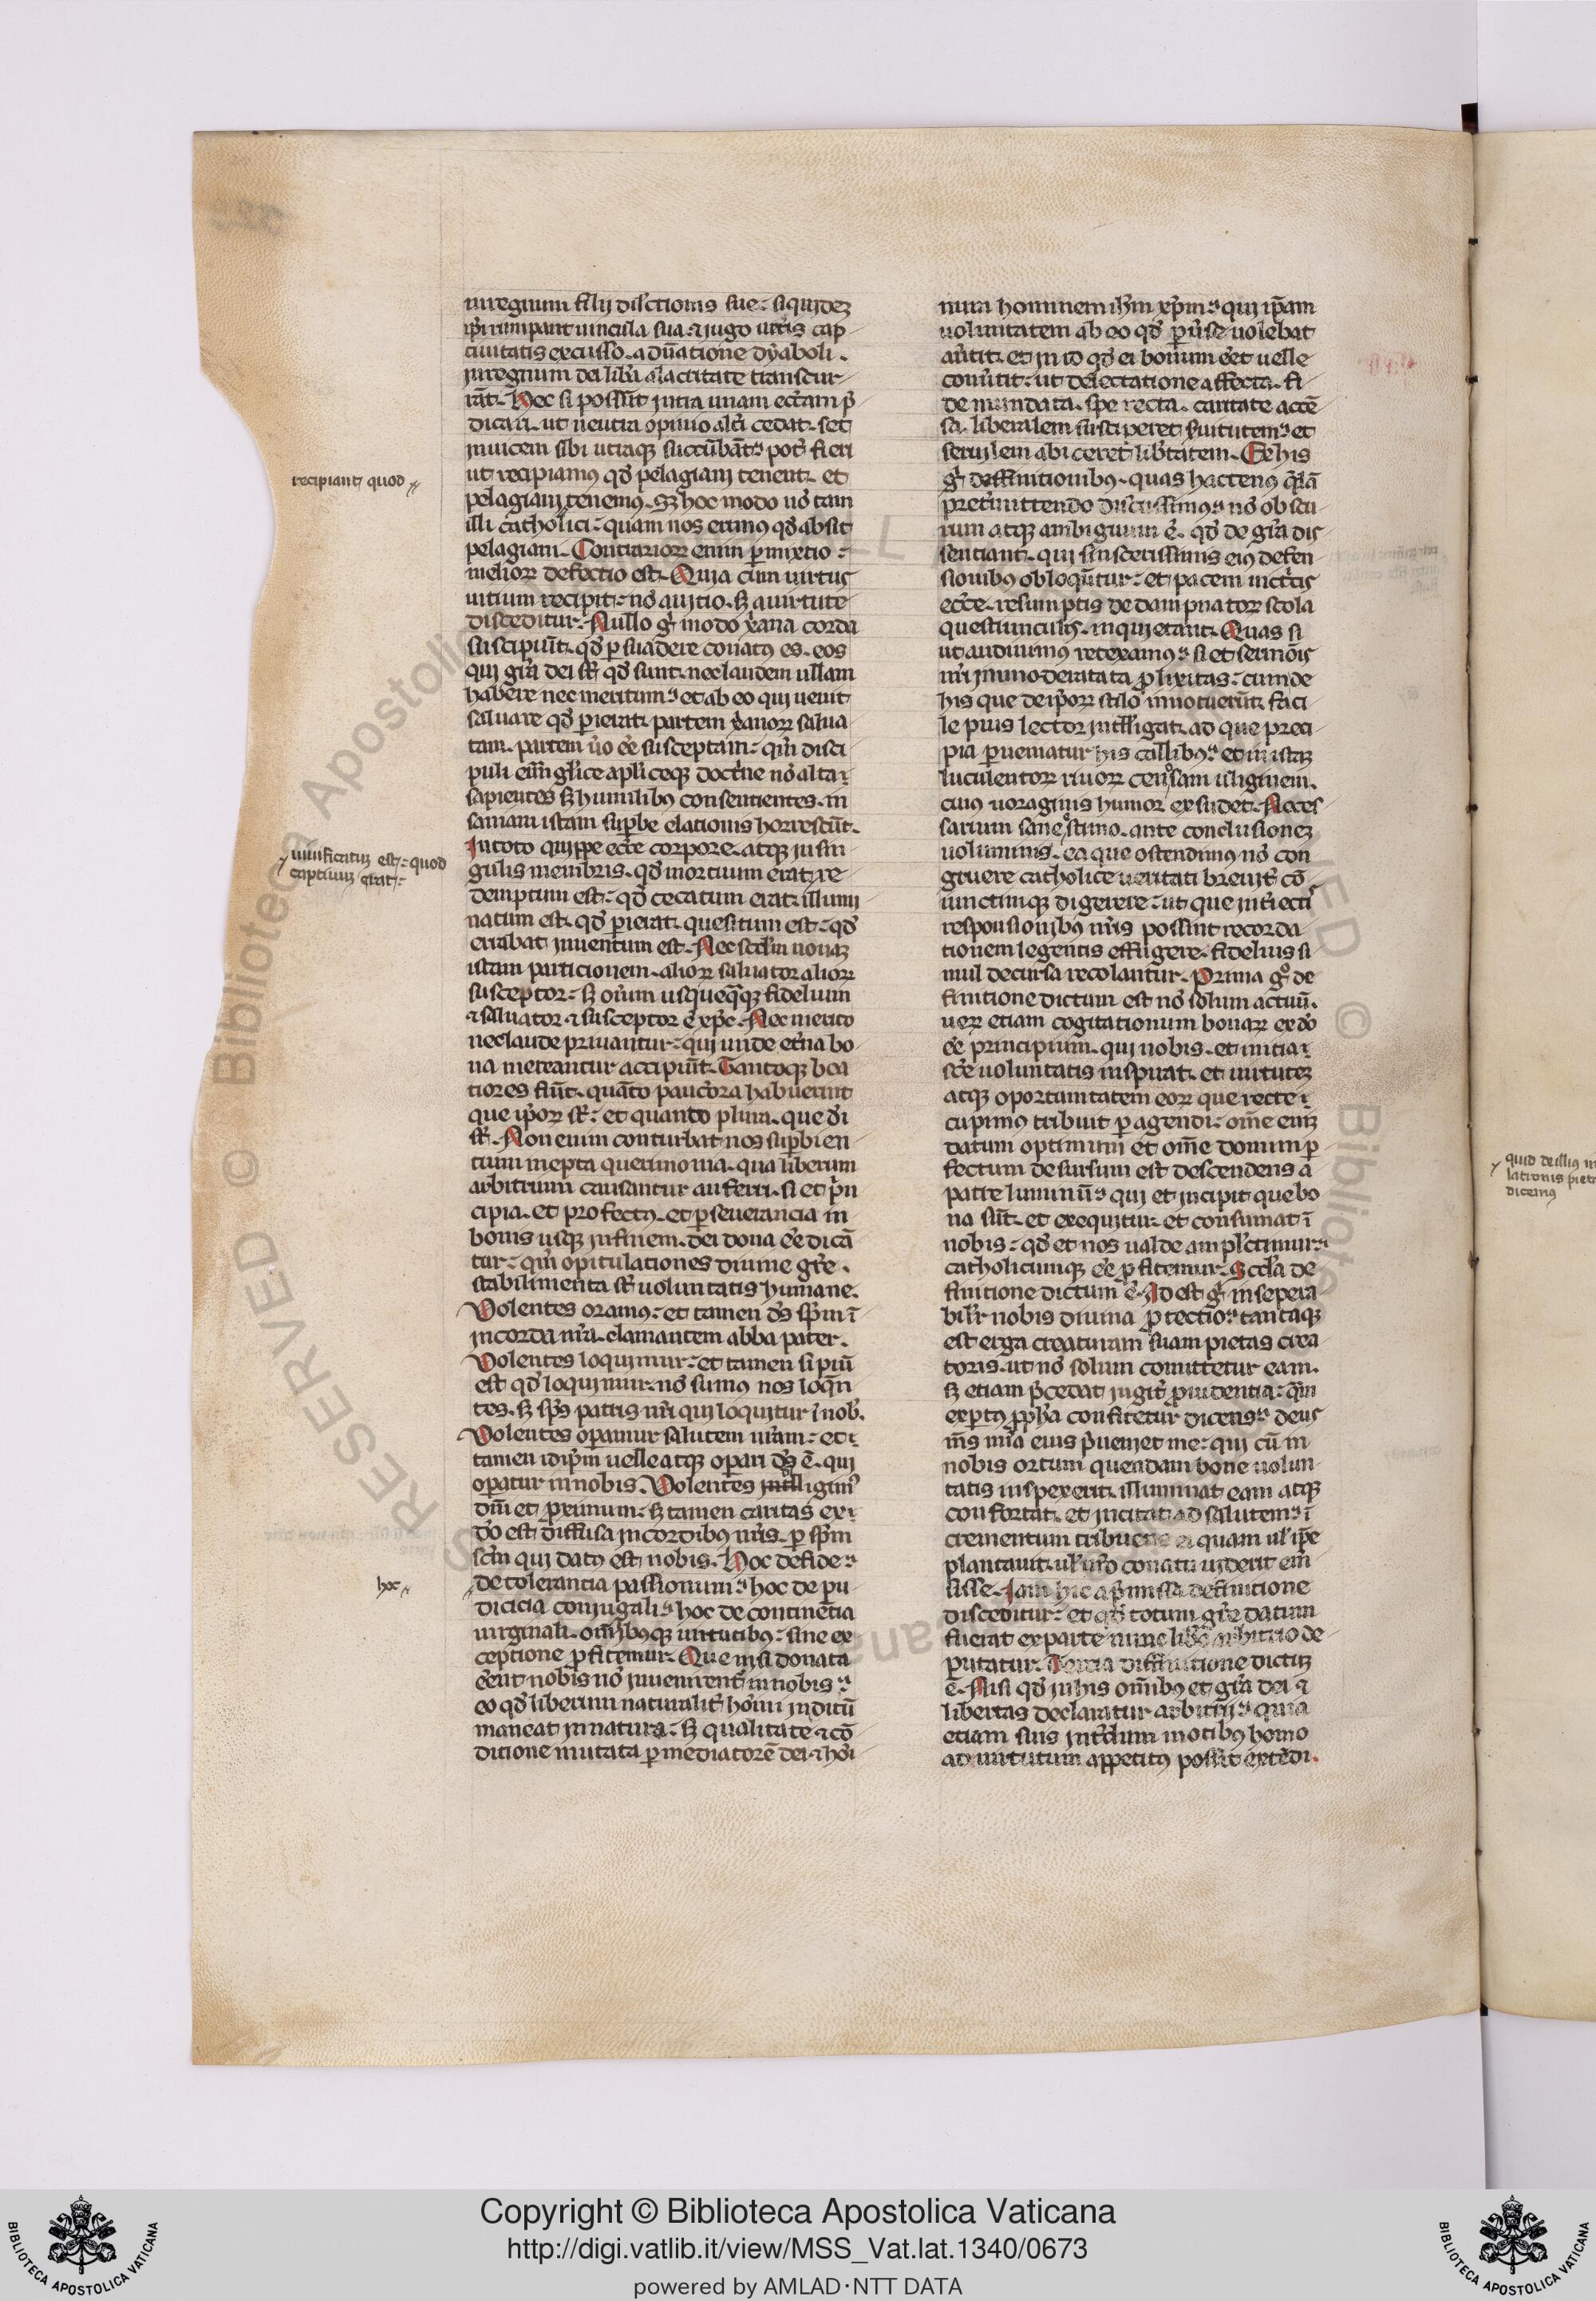 in regnum filij dilectionis sue. siquidez
ip̄i rumpant uincula sua. ⁊ iugo uet̄is cap
tiuitatis excusso. a dn̄atione dyaboli.
in regnum dei lib̄a alacritate transcur
rāt. Hec si possūt intra unam eccl̄am p̄
dicari. ut neutra opinio alt̄i cedat. set
inuicem sibi utraqꝫ succūbāt. pot̄ fieri
ut recipiamus qd̄ pelagiani tenent. et
pelagiani tenemus. Sꝫ hoc modo nō tam
illi catholici. quam nos erimus qd̄ absit
pelagiani. Contrarioꝝ enim ꝑmixtio.
melioꝝ defectio est. Quia cum uirtus
uitium recipit. nō a uitio. sꝫ a uirtute
disceditur. Nullo g̊ modo xp̄iana corda
suscipiūt. qd̄ ꝑsuadere conatus es. eos
qui gr̄a dei sūt qd̄ sunt. nec laudem ullam
habere nec meritum. et ab eo qui uenit
saluare qd̄ ꝑierat. partem xp̄ianoꝝ salua
tam. partem uo ēe susceptam. qm̄ disci
puli euāgl̄ice apl̄iceqꝫ doct̄ne nō alta
sapientes sꝫ humilibꝰ consentientes. in
saniam istam suꝑbe elationis horrescūt.
In toto quippe eccl̄e corpore. atqꝫ in sin
gulis membris. qd̄ mortuum erat re
demptum est. qd̄ cecatum erat. illumi
natum est. qd̄ ꝑierat. quesitum est. qd̄
errabat inuentum est. Nec scd̄m nouaꝫ
istam particionem. alioꝝ saluator alioꝝ
susceptor. sꝫ om̄ium usquequaqꝫ fidelium
⁊ saluator ⁊ susceptor ē xp̄c. Nec merito
nec laude priuantur. qui unde et̄na bo
na mereantur accipiūt. Tantoqꝫ bea
tiores fiūt. quāto pauciora habuerint
que ip̄oꝝ sūt. et quanto plura. que dei
sūt. Non enim conturbat nos suꝑbien
tium inepta querimonia. qua liberum
arbitrium causantur auferri. si et prin
cipia. et profectꝰ. et ꝑseuerancia in
bonis usqꝫ in finem. dei dona ēe dicā
tur. qm̄ opitulationes diuine gr̄e.
stabilimenta sūt uoluntatis humane.
Volentes oramus. et tamen ds̄ sp̄m ī
in corda nr̄a. clamantem abba pater.
Volentes loquimur. et tamen si piū
est qd̄ loquimur. nō sumus nos loqn̄
tes. sꝫ sp̄s patris nr̄i qui loquitur ī nob̄.
Volentes operamur salutem nr̄am. et
tamen idip̄m uelle atqꝫ operari ds̄ ē. qui
operatur in nobis. Volentes diligimꝰ
dm̄ et proximum. sꝫ tamen caritas ex
dō est. diffusa in cordibus nr̄is. ꝑ sp̄m
sc̄m qui datꝰ est nobis. Hoc de fide.
de tolerancia passionum. hoc de pu
dicicia coniugali. hoc de continētia
uirginali. omnibꝰqꝫ uirtutibꝰ. sine ex
ceptione ꝓfitemur. Que nisi donata
ēent nobis nō inuenirent̄ in nobis.
eo qd̄ liberum naturalit̄ hoi inditū
maneat in natura. sꝫ qualitate ⁊ cō
ditione mutata ꝑ mediatorē dei ⁊ hoi
recipiant quod
uiuificatuꝫ est. quod
captiuuꝫ erat.
hoc
num hominem ih̄m xp̄m. qui ip̄am
uoluntatem ab eo qd̄ ꝑuerse uolebat
au̇tit. et in id qd̄ ei bonum ēet uelle
conu̇tit. ut delectatione affecta. fi
de mundata. spe recta. caritate accē
sa. liberalem susciperet seruitutem. et
seruilem abiceret lib̄tatem. Ex his
g̊ deffinitionibꝰ. quas hactenus quedā
pretermittendo discussimus. nō obscu
rum atqꝫ ambiguum ē. qd̄ de gr̄a dis
sentiant. qui sincerissimis eius defen
sionibꝰ obloquūtur. et pacem uictricis
eccl̄e. resumptis de dampnatoꝝ scola
questiunculis. inquietant. Quas si
ut audiuimus retexamus. si et sermōis
nr̄i inmoderata ꝓlixitas. cum de
his que de ip̄oꝝ stilo innotuerūt. faci
le pius lector intelligat. ad que preci
pia ꝑueniatur his callibꝰ. et in istaꝫ
luculentoꝝ riuoꝝ cenosam uliginem.
cuius uoraginis humor exsudet. Neces
sarium sane estimo. ante conclusioneꝫ
uoluminis. ea que ostendimus nō con
gruere catholice ueritati breuit̄ cō
iunctimqꝫ digerere. ut que int̄iecti
responsionibus nr̄is possint recorda
tionem legentis effugere. fidelius si
mul decursa recolantur. Prima g̊ de
finitione dictum est nō solum actuū.
ueꝝ etiam cogitationum bonaꝝ ex dō
ēe principium. qui nobis. et initia
sc̄e uoluntatis inspirat. et uirtuteꝫ
atqꝫ oportunitatem eoꝝ que recte
cupimus tribuit peragendi. om̄e enim
datum optimum et om̄e donum ꝑ
fectum desursum est descendens a
patre luminū. qui et incipit que bo
na sūt. et exequitur. et consumat ī
nobis. qd̄ et nos ualde amplectimur.
catholicumqꝫ ēe ꝓfitemur. Scd̄a de
finitione dictum ē. Id est g̊ insepera
bilit̄ nobis diuina ꝓtectio. tantaqꝫ
est erga creaturam suam pietas crea
toris. ut nō solum comittetur eam.
sꝫ etiam p̄cedat iugit̄ prouidentia. quam
expertus ꝓph̄a confitetur dicens. deus
m̄s mīa eius p̄ueniet me. qui cū in
nobis ortum quendam bone uolun
tatis inspexerit. illuminat eam atqꝫ
confortat. et incitat ad salutem. ī
crementum tribuens ei quam ul̄ ip̄e
plantauit. ul̄ nr̄o conatu uiderit em̄
sisse. Iam hic a p̄missa definitione
disceditur. et qd̄ totum gr̄e datum
fuerat ex parte nunc libero arbitrio de
putatur. Tercia diffinitione dictuꝫ
ē. Nisi qd̄ in his om̄ibꝰ et gr̄a dei ⁊
libertas declaratur arbitrij. quia
etiam suis int̄dum motibꝰ homo
ad uirtutum appetitꝰ possit extēdi.
quid de illius
lationis
dicemus
Copyright © Biblioteca Apostolica Vaticana
http://digi.vatlib.it/view/MSS_Vat.lat.1340/0673
powered by AMLAD·NTT DATA
BIBLIOTECA APOSTOLICA VATICANA
BIBLIOTECA APOSTOLICA VATICANA